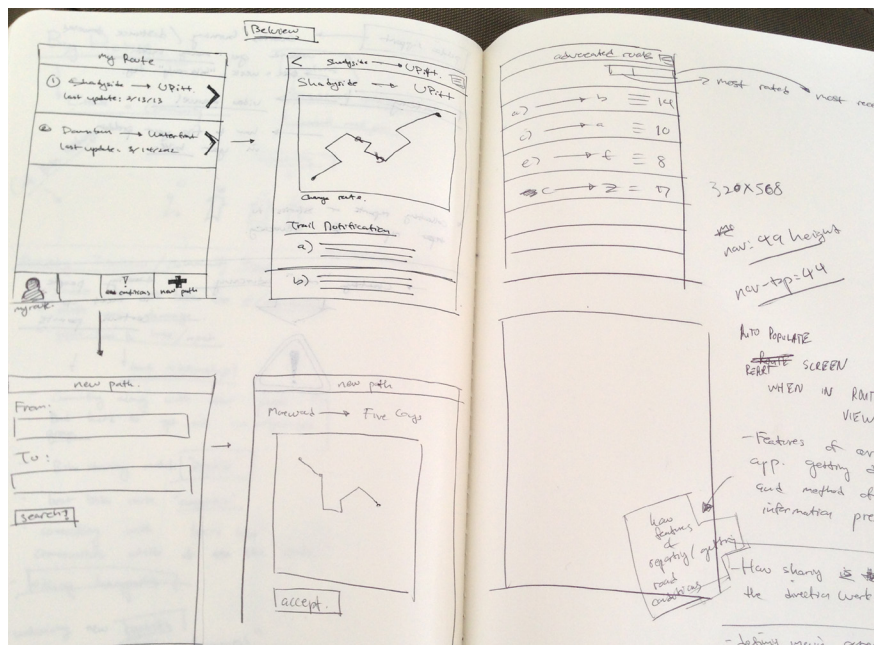 Belview
my Route
① Shadyside → UPitt.
last update: 3/13/13
② → Waterfront
last update: 3/
my route
conditions
new path
< Shadyside → UPitt.
Shadyside → UPitt
Change route.
Trail Notification
a)
b)
new path.
From:
To:
search?
new path
→ Five Guys
accept.
advocated route
most rated
most
a) → b 14
c) → a 10
e) → f 8
c → z = 7
320x568
nav: 49 height
nav-top=44
AUTO POPULATE
SCREEN
WHEN IN ROUT
VIEW
- Features of
app. getting
and method of
information pre
how
features
of
reporting / getting
road
conditions
- How sharing is
the direction want